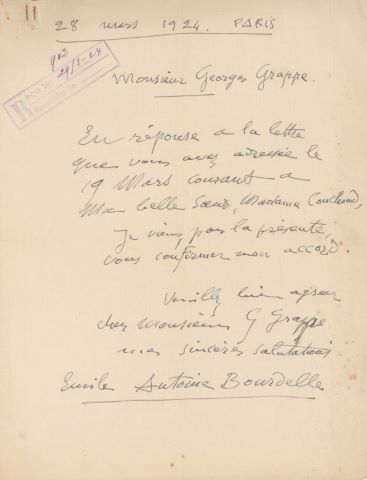 28 mars 1924. PARIS
Reçu le
Répondu le
Monsieur Georges Grappe.
En réponse a la lettre
que vous avez adressée le
19 Mars courant a
Ma belle Sœur, Madame Couchoud,
Je viens, par la présente,
vous confirmer mon accord.
Veuillez bien agréer
cher Monsieur G Grappe
mes sincères salutations
Emile Antoine Bourdelle